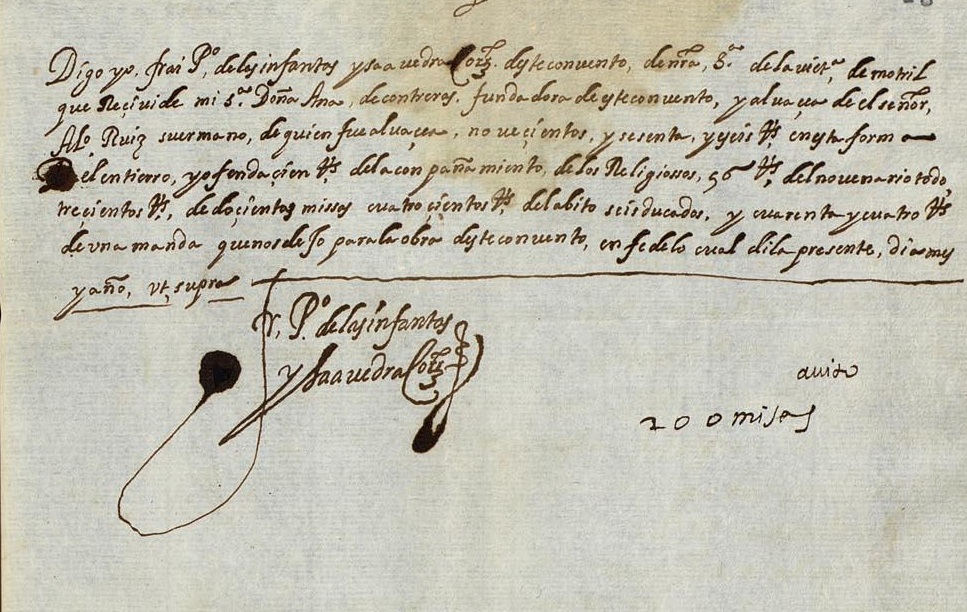 Digo yo, frai Pº, de las infantas y saavedra Corr. deste convento, de nrã, Sª de la victª de motril
que Reçivi de mi sª Doña Ana, de contreras. fundadora de este convento, y alvaçea de el señor,
Alº Ruiz su ermano, de quien fue alvaçea, noveçientos, y sesenta, y seis Rs en esta forma
el entierro, y ofenda çien Rs de la conpañamiento, de los Religiossos, 56 Rs, del novenario todo,
treçientos Rs, de doçientas missas cuatroçientos Rs del abito seis ducados, y cuarenta y cuatro Rs
de vna manda que nos dejo para la obra deste convento, en fe de lo cual di la presente, dia mes
y año, vt, supra
fr, Pº de las infantas
y Saavedra Corr
auito
200 misas